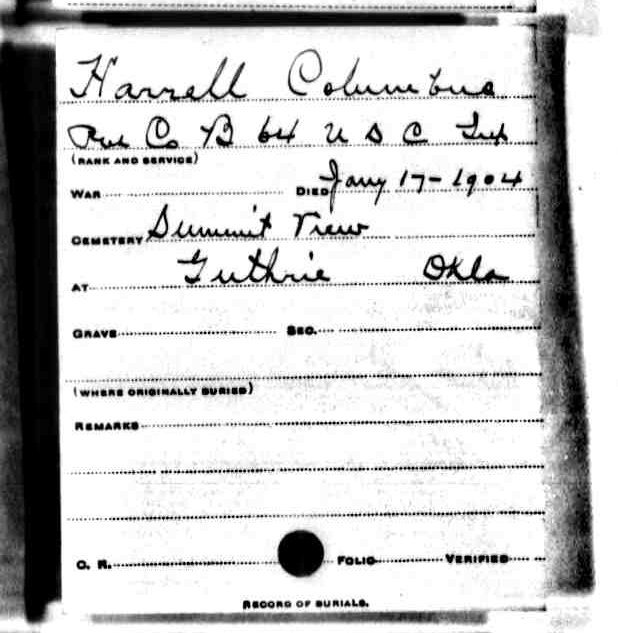 Harrell Columbus
Pvt Co B 64 U S C Inf
(RANK AND SERVICE)
WAR DIED Jany 17-1904
CEMETERY Summit View
AT Guthrie Okla
GRAVE SEC.
(WHERE ORIGINALLY BURIED)
REMARKS
O. R. FOLIO VERIFIED
RECORD OF BURIALS.